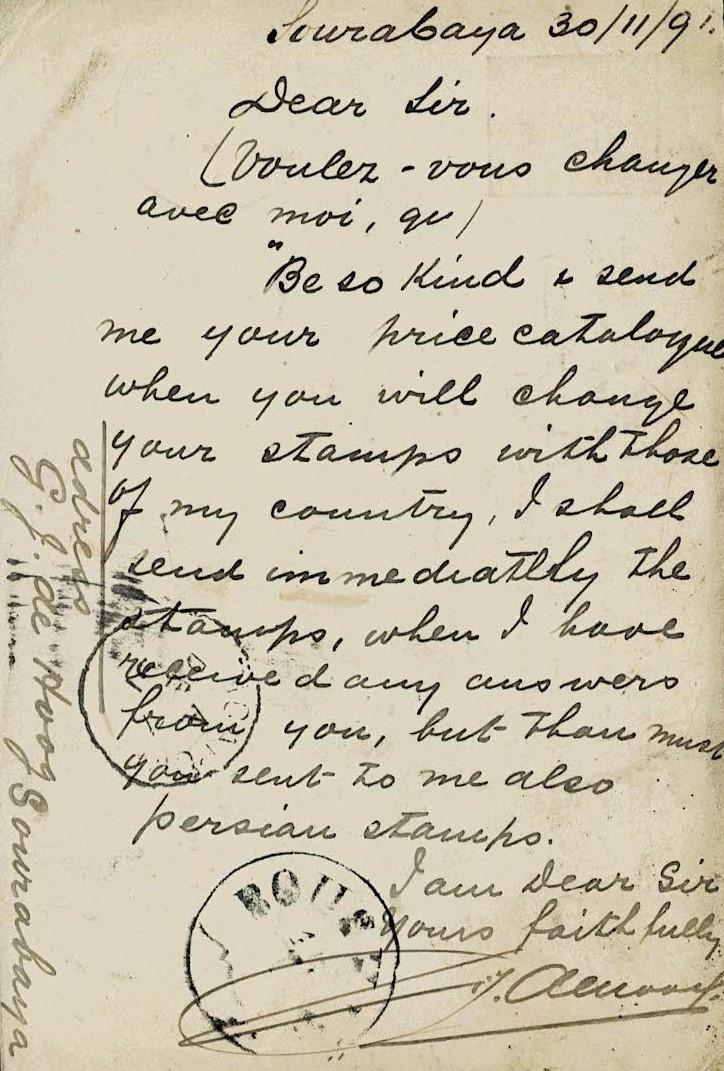 Sourabaya 30/11/91.
Dear Sir.
(Voulez-vous changer
avec moi, qu)
"Be so kind & send
me your price catalogue
when you will change
your stamps with those
of my country, I shall
send immediatlly the
stamps, when I have
received any answers
from you, but than must
you sent to me also
persian stamps.
I am Dear Sir
Yours faithfully
adress
G. J. de Hoog Sourabaya